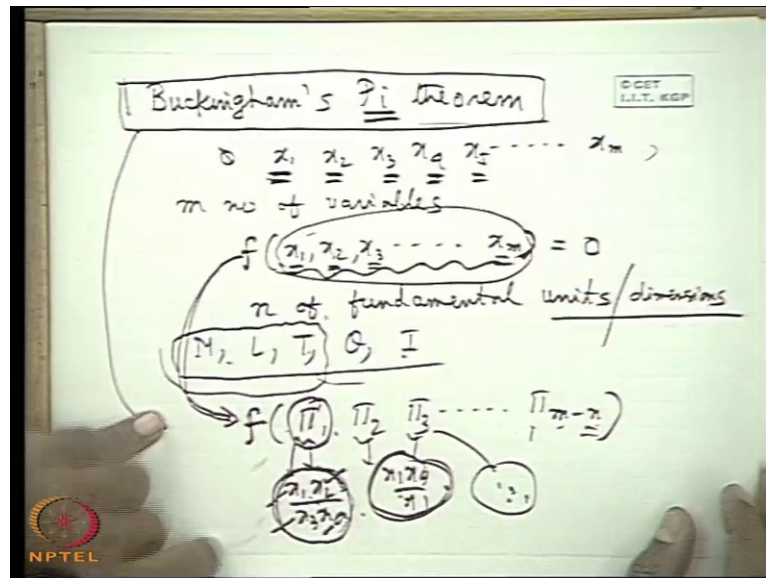 Buckingham's Pi theorem
© CET
I.I.T. KGP
x₁ x₂ x₃ x₄ x₅ ...... xₘ,
m no of variables
f(x₁, x₂, x₃ ..... xₘ) = 0
n of fundamental units/dimensions
M, L, T, θ, I
f(Π₁. Π₂ Π₃ ..... Πₘ₋ₙ)
x₁x₂/x₃x₄ . x₁x₄/x₁
NPTEL